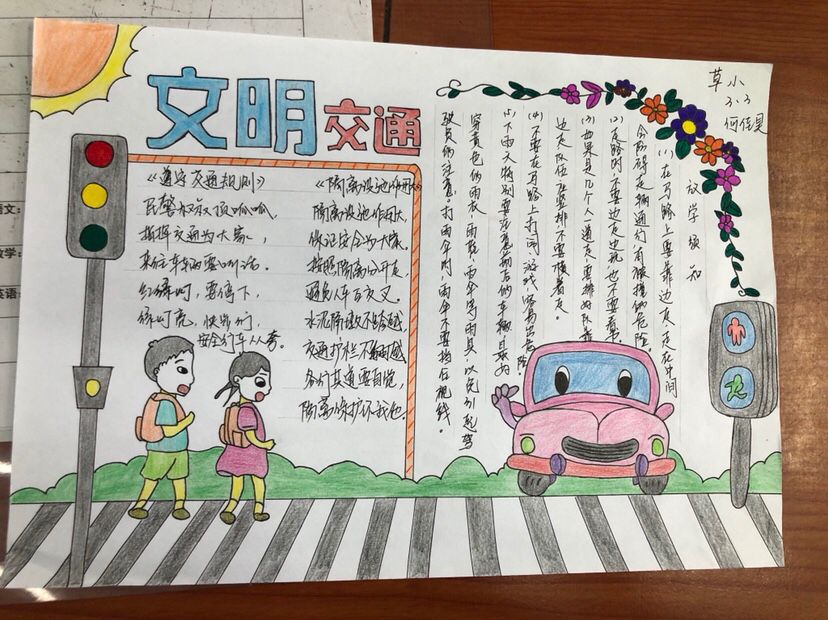 文明交通
草小
3.3
《遵守交通规则》
民警叔叔顶呱呱,
指挥交通为大家,
来往车辆要听话。
红绿灯,要停下,
绿灯亮,快步行,
安全行车人人夸。
《隔离设施作用大》
隔离设施作用大,
保证安全为大家。
按照隔离分开走,
避免人车互交叉。
水泥隔墩不跨越,
交通护栏不翻越
各行其道要自觉,
隔离保护你我他。
放学须知
(1)在马路上要靠边走,走在中间
会防碍走辆通行有被撞的危险。
(2)走路时不要边走边玩也不要看书。
(3)如果是几个人一道走,要排好队靠
边走,队伍应竖排不要横着走。
(4)不要在马路上打闹、游戏,容易出危险。
(5)下雨天特别要注意前后的车辆最好
穿黄色的雨衣、雨鞋、雨伞等雨具,以免引起驾
驶员的注意。打雨伞时,雨伞不要挡住视线。
语文:
数学:
英语: